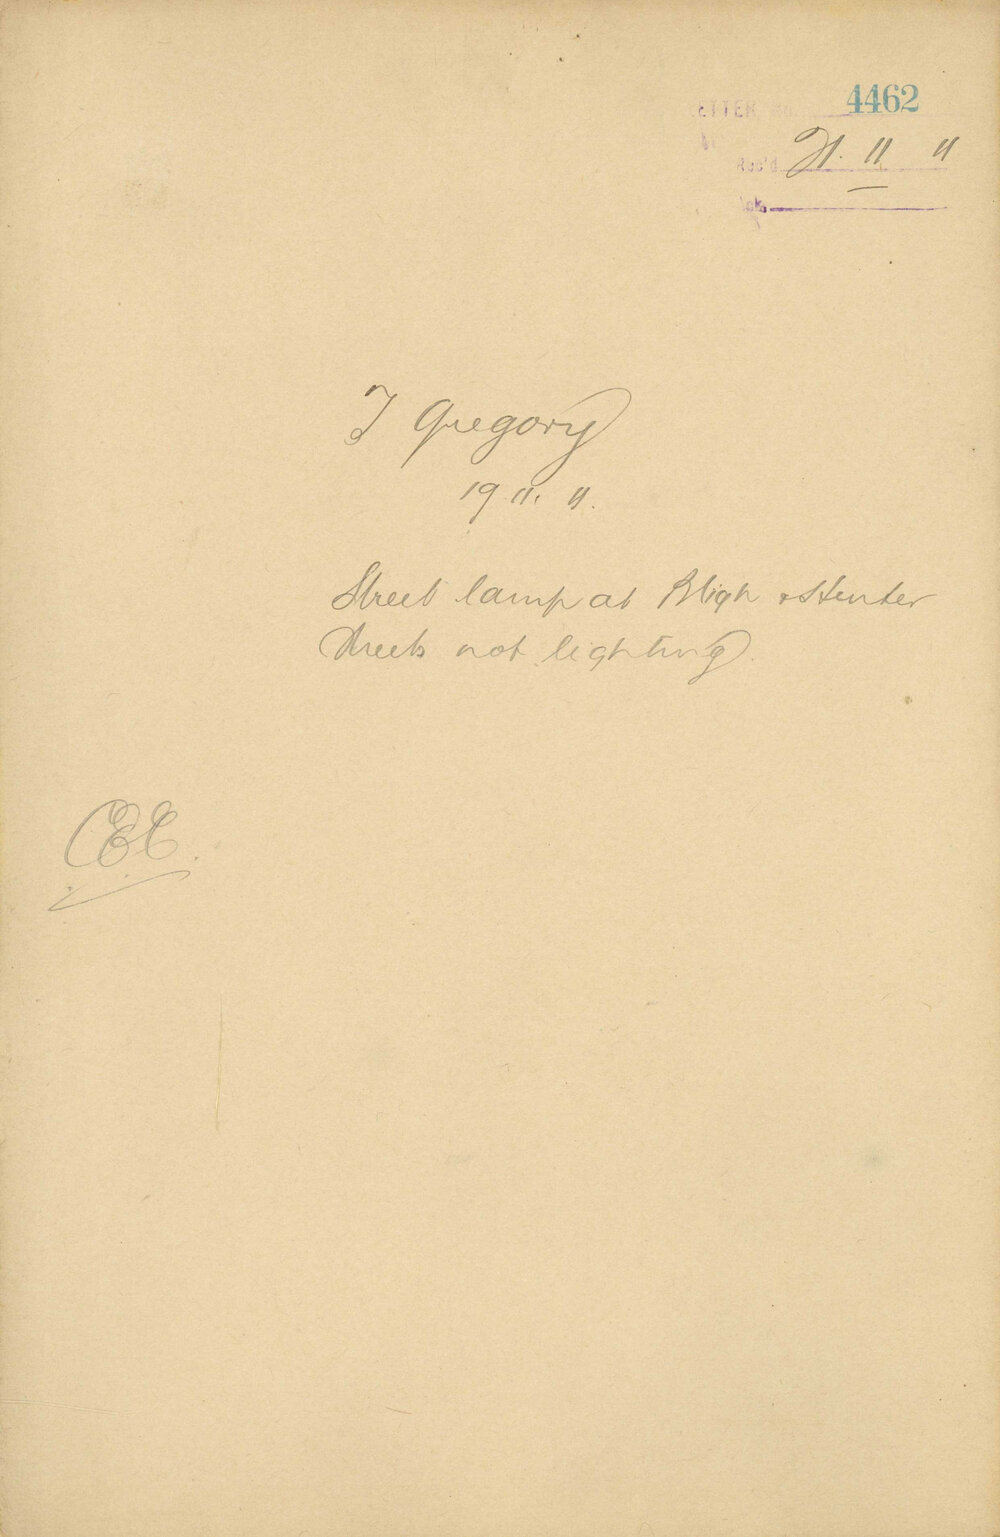 LETTER No. 4462
Rec'd 21. 11 11
Ack.
T Gregory
19 11. 11.
Street lamp at Bligh & Hunter
Streets not lighting